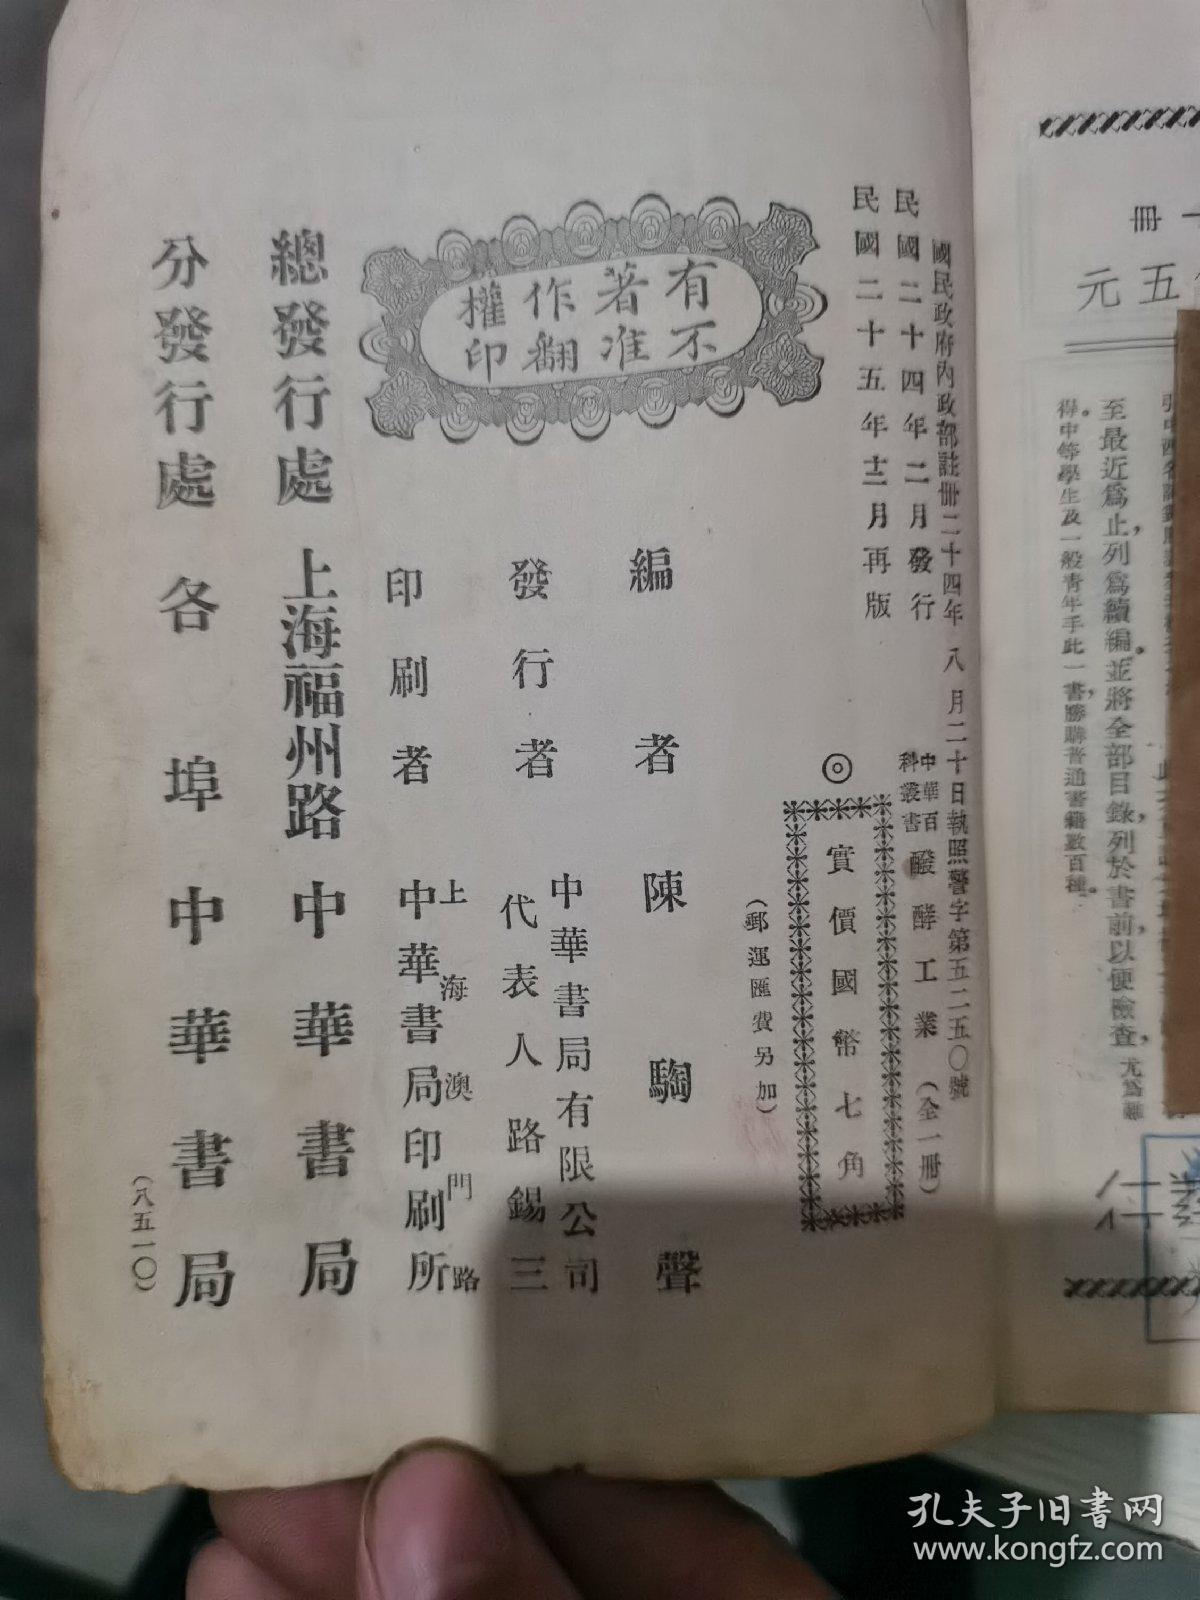 冊
五元
至最近爲止，列爲續編。並將全部目錄，列於書前，以便檢查，尤爲難
得。中等學生及一般青年手此一書，勝購普通書籍數百種。
國民政府內政部註冊二十四年八月二十日執照警字第五二五〇號
民國二十四年二月發行
民國二十五年十二月再版
中華百科叢書
醱酵工業（全一冊）
◎
實價國幣七角
（郵運匯費另加）
有著作權
不准翻印
編者 陳騊聲
發行者
中華書局有限公司
代表人 路錫三
印刷者
上海澳門路
中華書局印刷所
總發行處 上海福州路 中華書局
分發行處 各埠 中華書局
（八五一〇）
孔夫子旧书网
www.kongfz.com